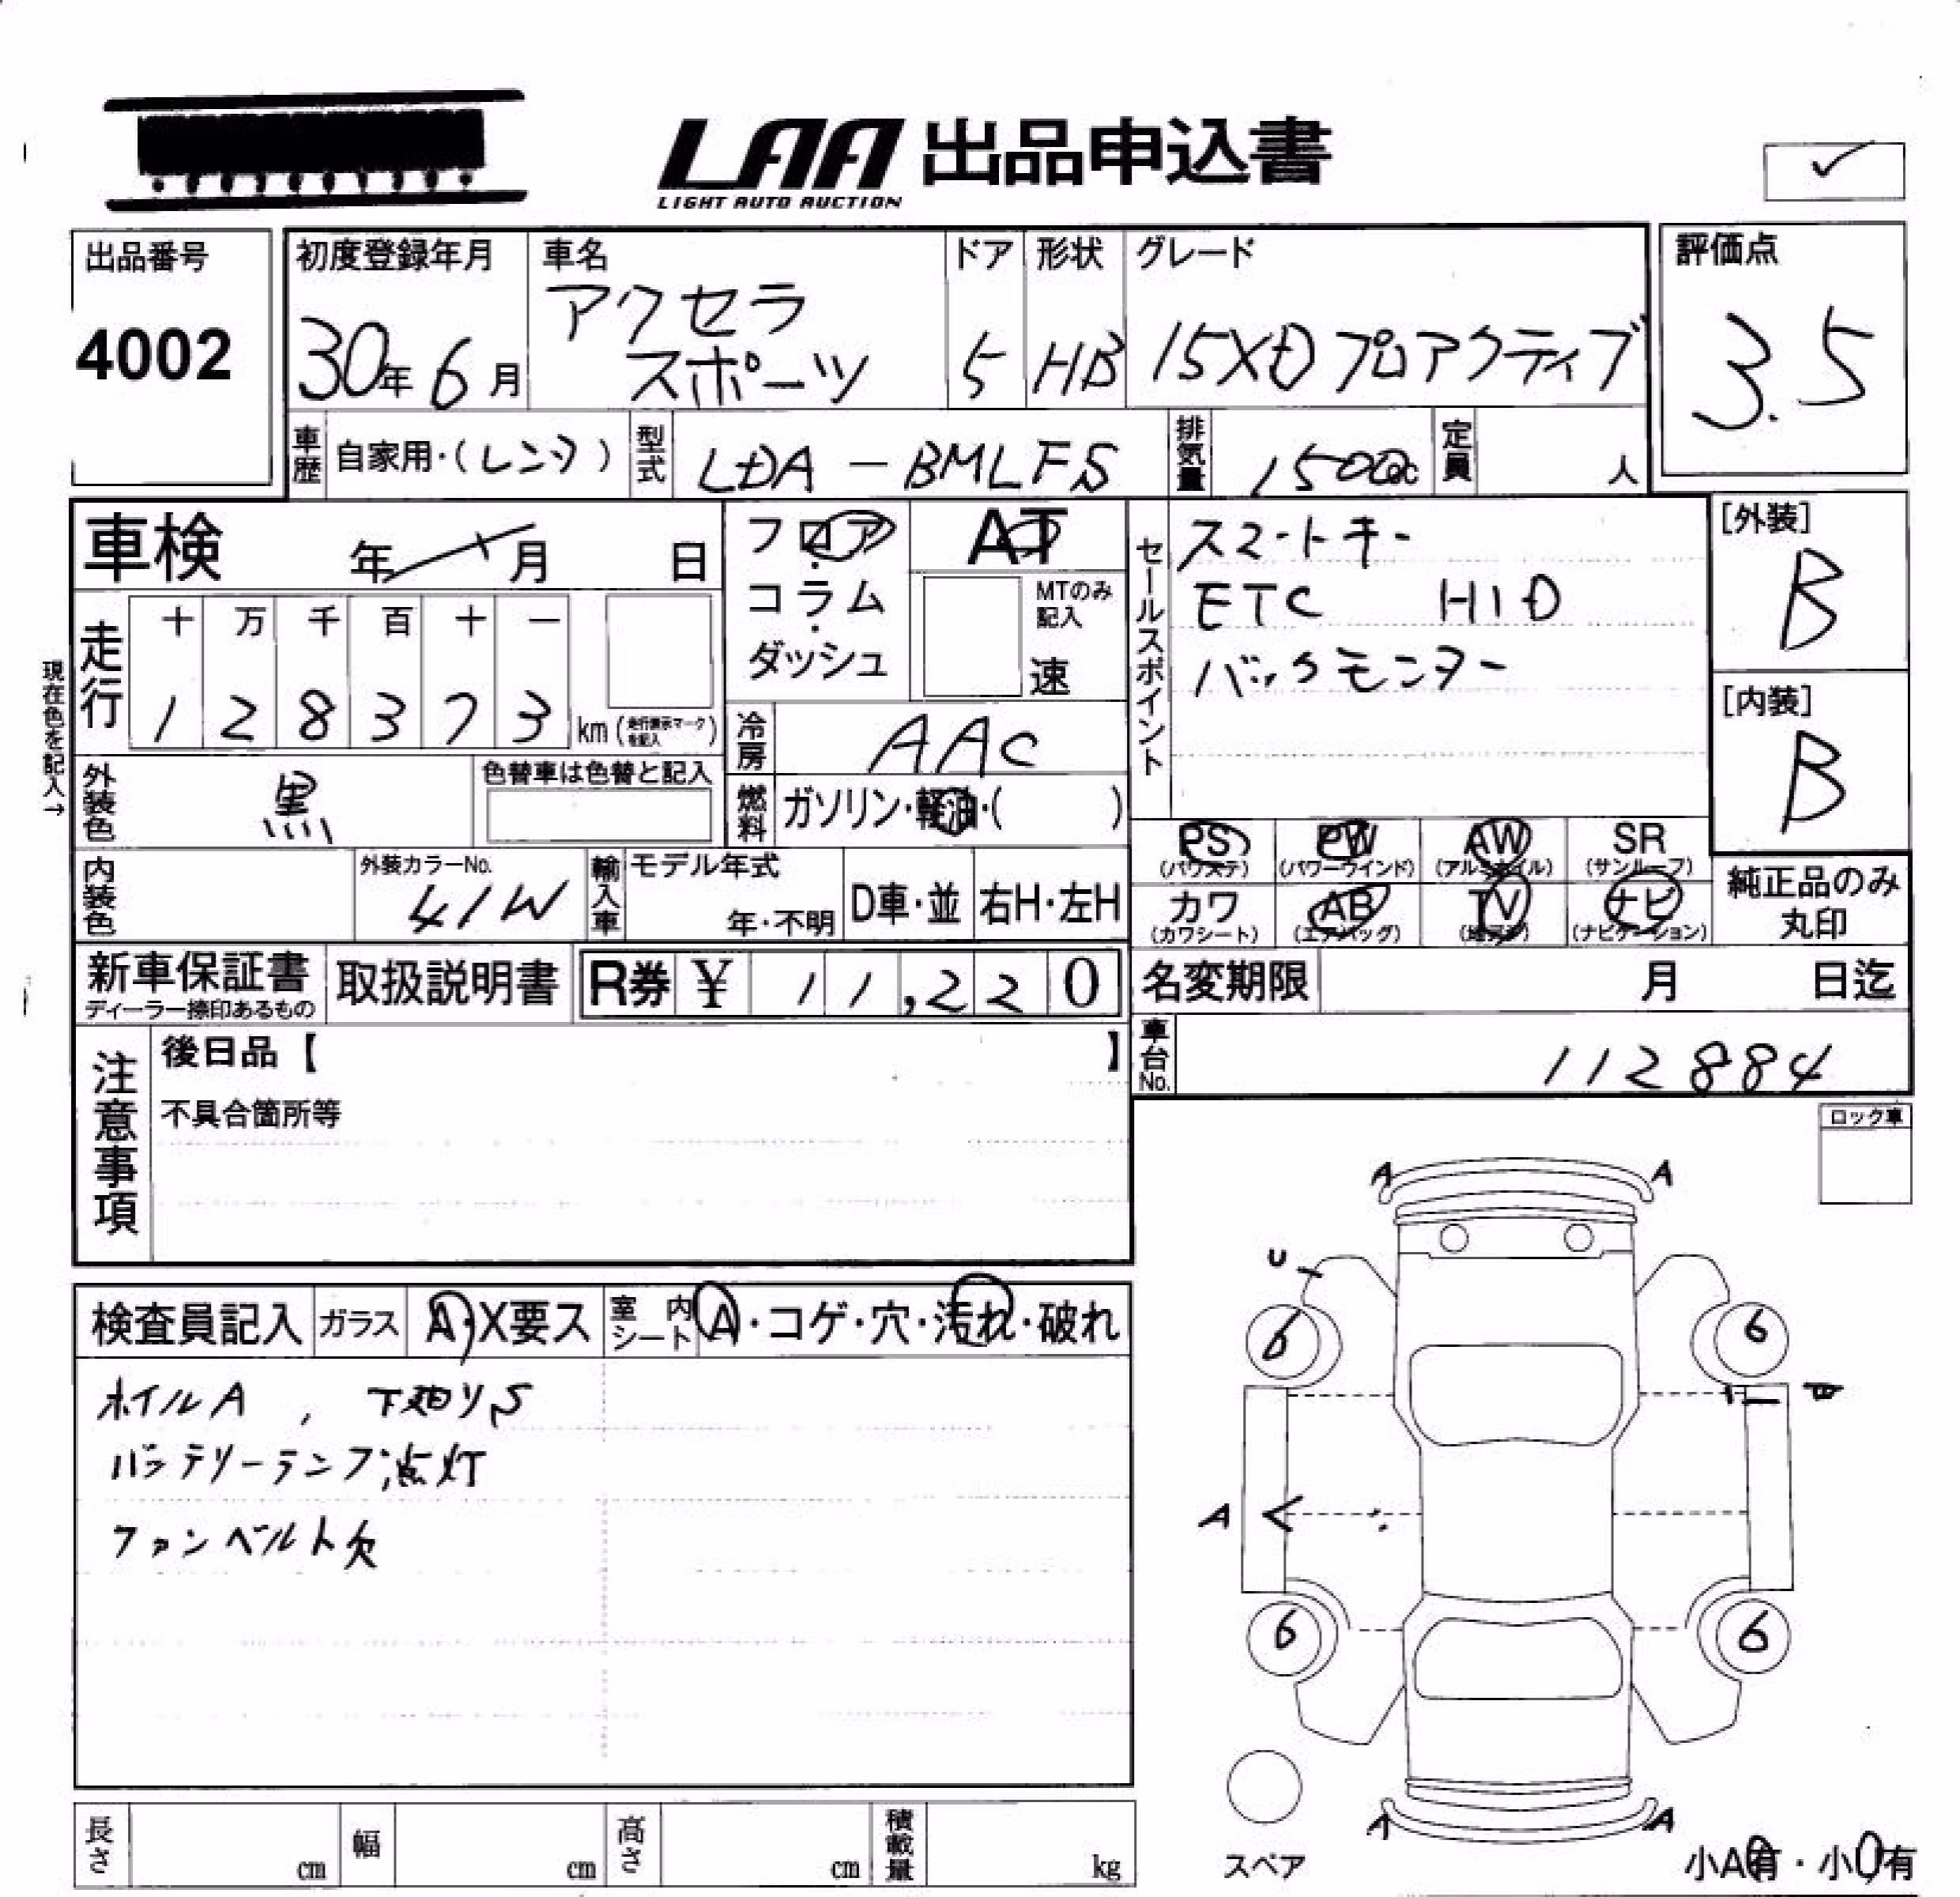 LAA 出品申込書
LIGHT AUTO AUCTION
出品番号
4002
初度登録年月
30年6月
車名
アクセラ
スポーツ
ドア
5
形状
HB
グレード
15XD プロアクティブ
評価点
3.5
車歴
自家用・(レンタ)
型式
LDA-BMLFS
排気量
1500cc
定員
人
車検
年 月 日
フロア
コラム
ダッシュ
AT
MTのみ
記入
速
セールスポイント
スマートキー
ETC HID
バックモニター
[外装]
B
[内装]
B
現在色を記入→
走行
十 万 千 百 十 一
1 2 8 3 7 3
km (走行表示マークを記入)
冷房
AAC
外装色
黒
色替車は色替と記入
燃料
ガソリン・軽油・( )
PS
(パワステ)
PW
(パワーウインド)
AW
(アルミホイル)
SR
(サンルーフ)
内装色
外装カラーNo.
41W
輸入車
モデル年式
年・不明
D車・並
右H・左H
カワ
(カワシート)
AB
(エアバッグ)
TV
ナビ
(ナビゲーション)
純正品のみ
丸印
新車保証書
ディーラー捺印あるもの
取扱説明書
R券 ¥ 11,220
名変期限
月 日迄
車台No.
112884
注意事項
後日品【 】
不具合箇所等
ロック車
検査員記入
ガラス
A・X要ス
室内シート
A・コゲ・穴・汚れ・破れ
ホイルA , 下廻りS
バッテリーランプ点灯
ファンベルト欠
A A
U
6 6
A
6 6
A A
スペア
小A有・小U有
長さ
cm
幅
cm
高さ
cm
積載量
kg